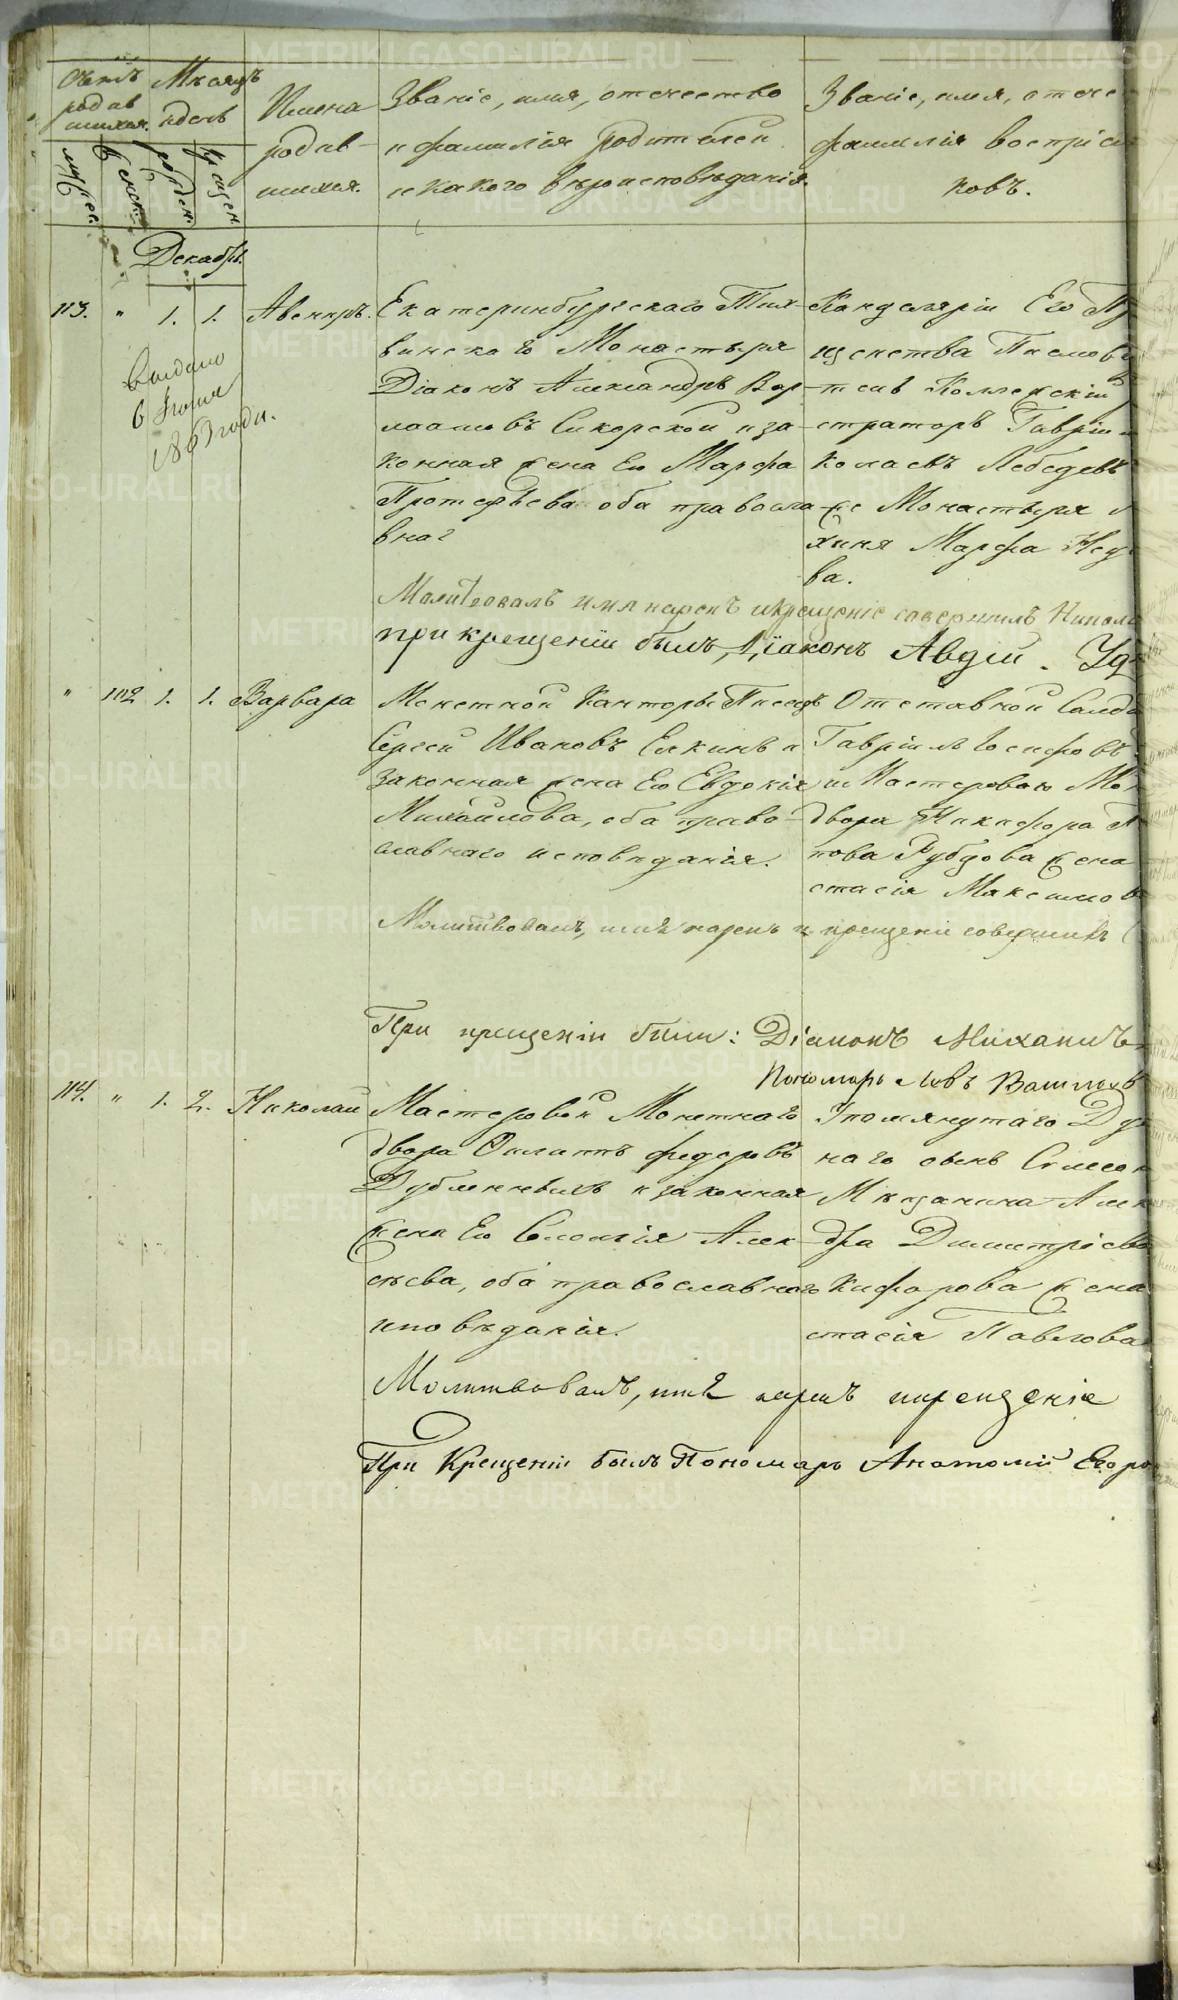 Счетъ родившихся.
Мѣсяцъ и день
Имена родившихся.
Званіе, имя, отчество и фамилія родителей и какого вѣроисповѣданія.
Званіе, имя, отече
фамилія воспріем
ковъ.
Декабрь.
113. " 1. 1. Авениръ.
Выдано
в Іюня
Екатеринбургскаго Тих-
винскаго Монастыря
Діаконъ Александръ Вар-
лаамовъ Сикорской и за-
конная жена Его Марфа
Протефьева оба правосла
внаг
Канцеляріи Его Пр
щенства Письмов
тель Коллежскій
страторъ Гавріи
колаевъ Лебедевъ
же Монастыря
хиня Марфа Нед
ва.
Молитвовалъ имя нарекъ и крещеніе совершилъ Никола
при крещеніи былъ Діаконъ Авдій.
" 112 1. 1. Варвара
Монетной Канторы Писецъ
Сергей Ивановъ Елкинъ и
законная жена Его Евдокія
Михайлова, оба право-
славнаго исповѣданія.
Отставной Салда
Гавріилъ Іосифовъ
и Мастероваго Мон
двора Никифора
това жена
стасія Максимов
Молитвовалъ, имя нарекъ и крещеніе совершилъ
При крещеніи были: Діаконъ Михаилъ
Пономарь Левъ
114. " 1. 2. Николай
Мастеровой Монетнаго
двора Филатъ Федоровъ
и законная
жена Его Соломія Алек-
сѣева, оба православнаго
исповѣданія.
Упомянутаго Д
наго сынъ Симеон
Мѣщанина Алек
дра Димитріев
Кифарова жена
стасія Павлова
Молитвовалъ, имя нарекъ и крещеніе
При Крещеніи былъ Пономарь Анатолій Егоро
METRIKI.GASO-URAL.RU